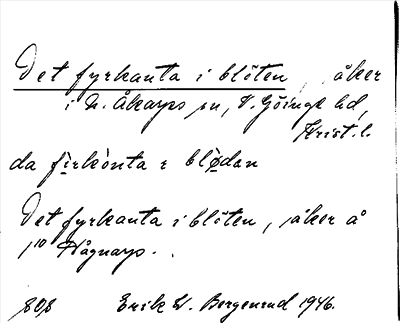 Det fyrkanta i blöten, åker
i N. Åkarps sn, V. Göinge hd,
Krist. l.
da fi̱rkònta ɪ blø̱dan
Det fyrkanta i blöten, åker å
1/10 Hågnarp.
808 Erik W. Bergenrud 1946.